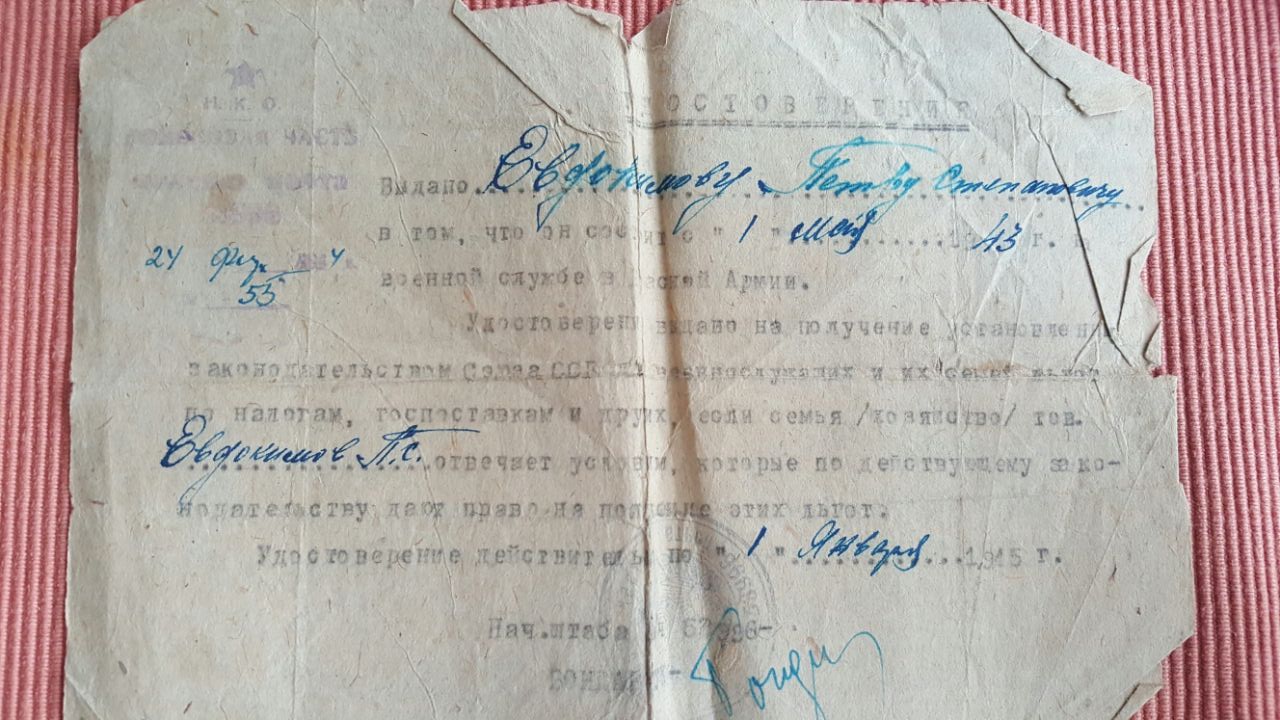 Н. К. О.
ЧАСТЬ
УДОСТОВЕРЕНИЕ
Выдано Евдокимову Петру Степановичу
в том, что он состоит с " 1 " мая 1943 г. в
24 53
военной службе в Красной Армии.
Удостоверение выдано на получение установленных
законодательством Союза ССР для военнослужащих и их семей льгот
по налогам, госпоставкам и других, если семья /хозяйство/ тов.
Евдокимов П.С. отвечает условиям, которые по действующему зако-
нодательству дают право на получение этих льгот.
Удостоверение действительно по " 1 " Января 1945 г.
Нач.штаба